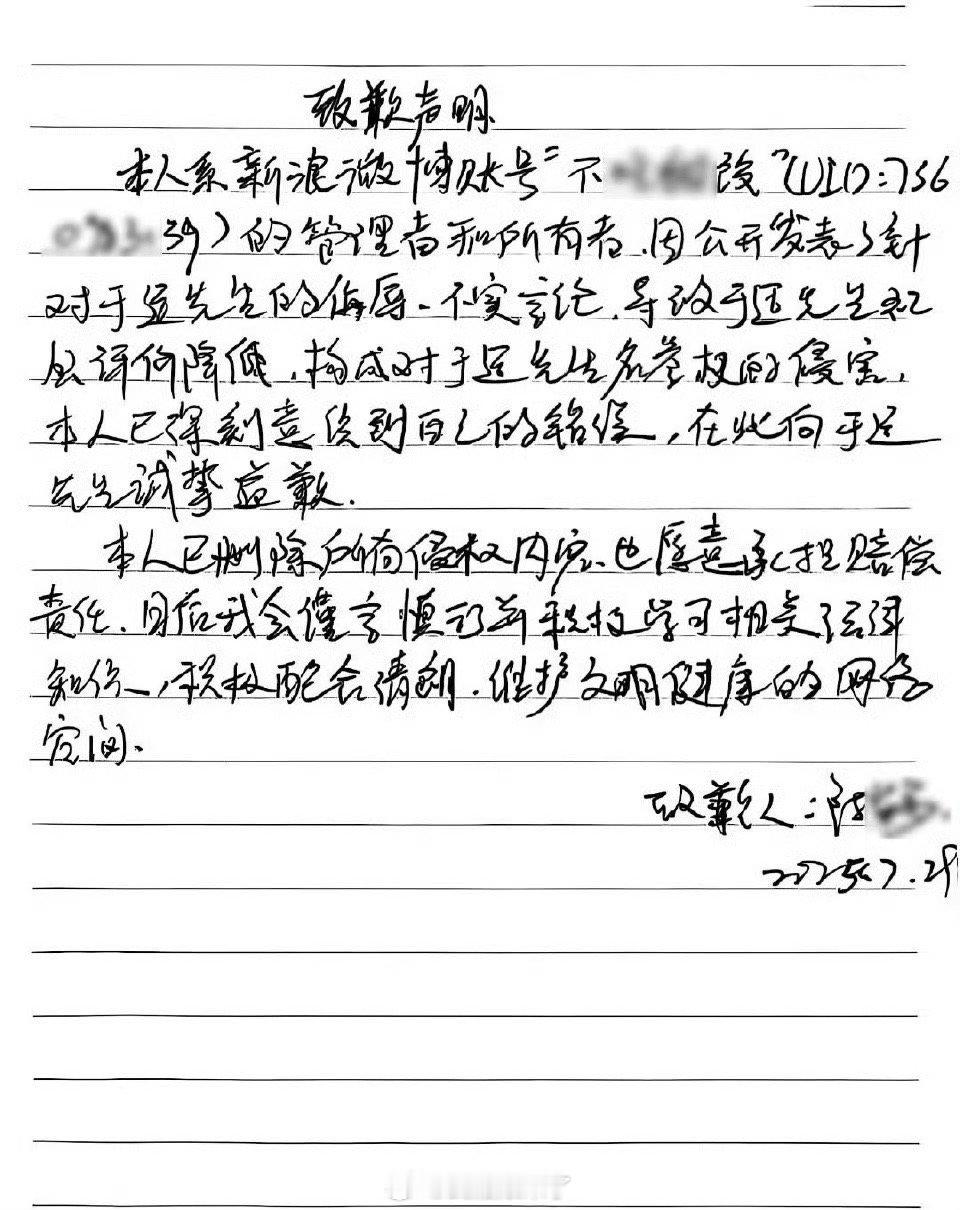 致歉声明
本人系新浪微博账号“不 改”(UID:756
39)的管理者和所有者.因公开发表了针
对于适先生的侮辱、不实言论.导致于适先生社
会评价降低,构成对于适先生名誉权的侵害,
本人已深刻意识到自己的错误,在此向于适
先生诚挚道歉.
本人已删除所有侵权内容.也愿意承担赔偿
责任.日后我会谨言慎行并积极学习相关法律
知识,积极配合清朗.维护文明健康的网络
空间.
致歉人:陆
2025.7.29